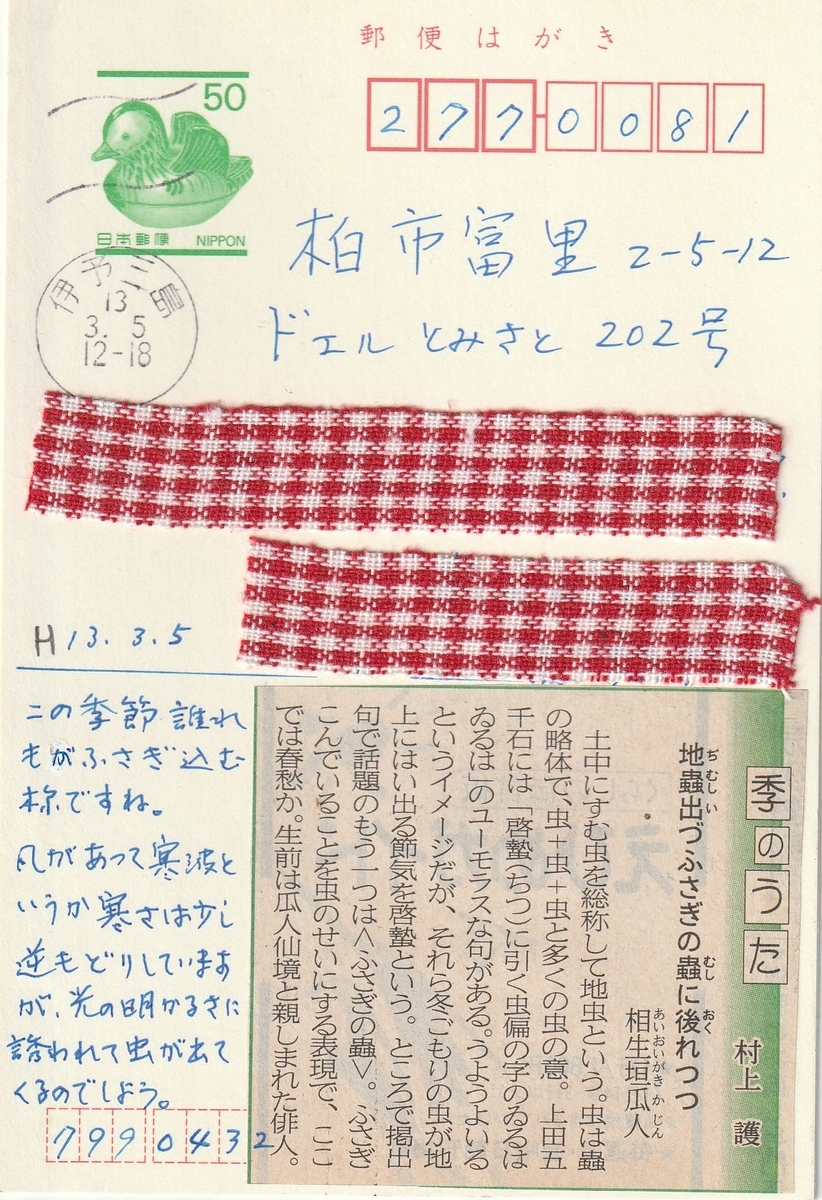 郵便はがき
50
日本郵便 NIPPON
277-0081
伊予三島
13
3. 5
12-18
柏市富里 2-5-12
ドエルとみさと 202号
H13.3.5
この季節誰れ
もがふさぎ込む
様ですね。
風があって寒波と
いうか寒さは少し
逆もどりしています
が、光の明かるさに
誘われて虫が出て
くるのでしょう。
799 0432
季のうた
村上 護
地蟲出づふさぎの蟲に後れつつ
ぢむしい むし おく
相生垣瓜人
あいおいがき かじん
土中にすむ虫を総称して地虫という。虫は蟲
の略体で、虫+虫+虫と多くの虫の意。上田五
千石には「啓蟄(ちつ)に引く虫偏の字のゐるは
ゐるは」のユーモラスな句がある。うようよいる
というイメージだが、それら冬ごもりの虫が地
上にはい出る節気を啓蟄という。ところで掲出
句で話題のもう一つは<ふさぎの蟲>。ふさぎ
こんでいることを虫のせいにする表現で、ここ
では春愁か。生前は瓜人仙境と親しまれた俳人。